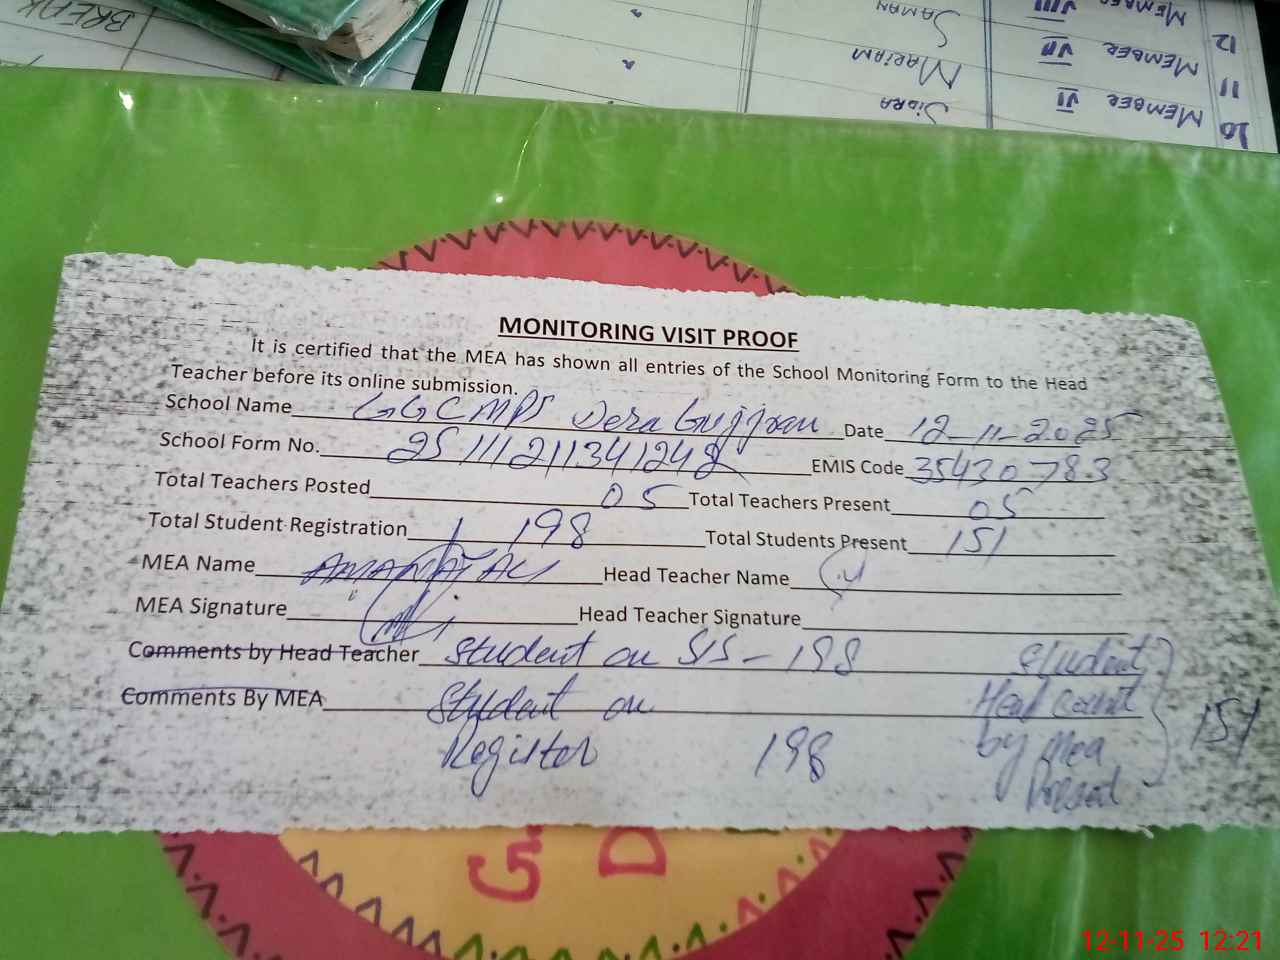 BREAK
MEMBER VIII SAMAN
12
MEMBER VII MARIAM
11
MEMBER VI SIDRA
10
MONITORING VISIT PROOF
It is certified that the MEA has shown all entries of the School Monitoring Form to the Head
Teacher before its online submission.
School Name GGCMPS Dera Gujjran Date 12-11-2025
School Form No. 25111211341248 EMIS Code 35430783
Total Teachers Posted 05 Total Teachers Present 05
Total Student Registration 198 Total Students Present 151
MEA Name AMANAT ALI Head Teacher Name
MEA Signature Head Teacher Signature
Comments by Head Teacher Student on SIS - 198 Student
Comments By MEA Student on Head count
Register 198 by Mea 151
Present
12-11-25 12:21